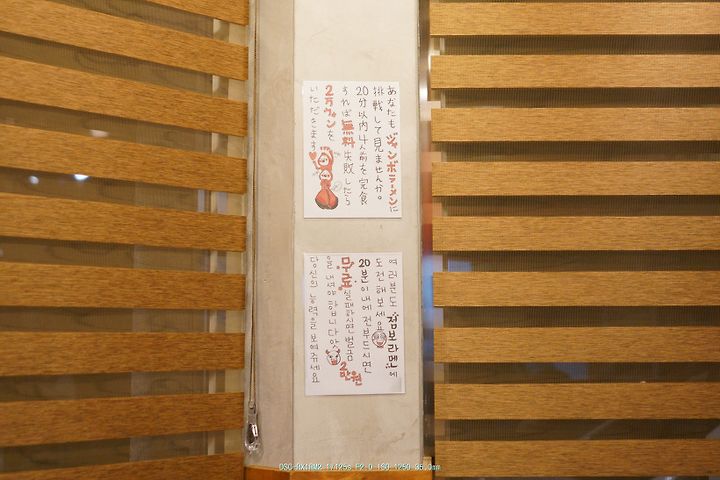 あなたもジャンボラーメンに
挑戦して見ませんか。
20分以内4人前を完食
すれば無料失敗したら
2万ウォンを
いただきます
여러분도 점보라멘에
도전해보세요
20분이내에 전부드시면
무료 실패하시면 벌금
2만원
을 내셔야 합니다앗
당신의 능력을 보여주세요
DSC-RX1RM2 1/125s F2.0 ISO 1250 35.0mm